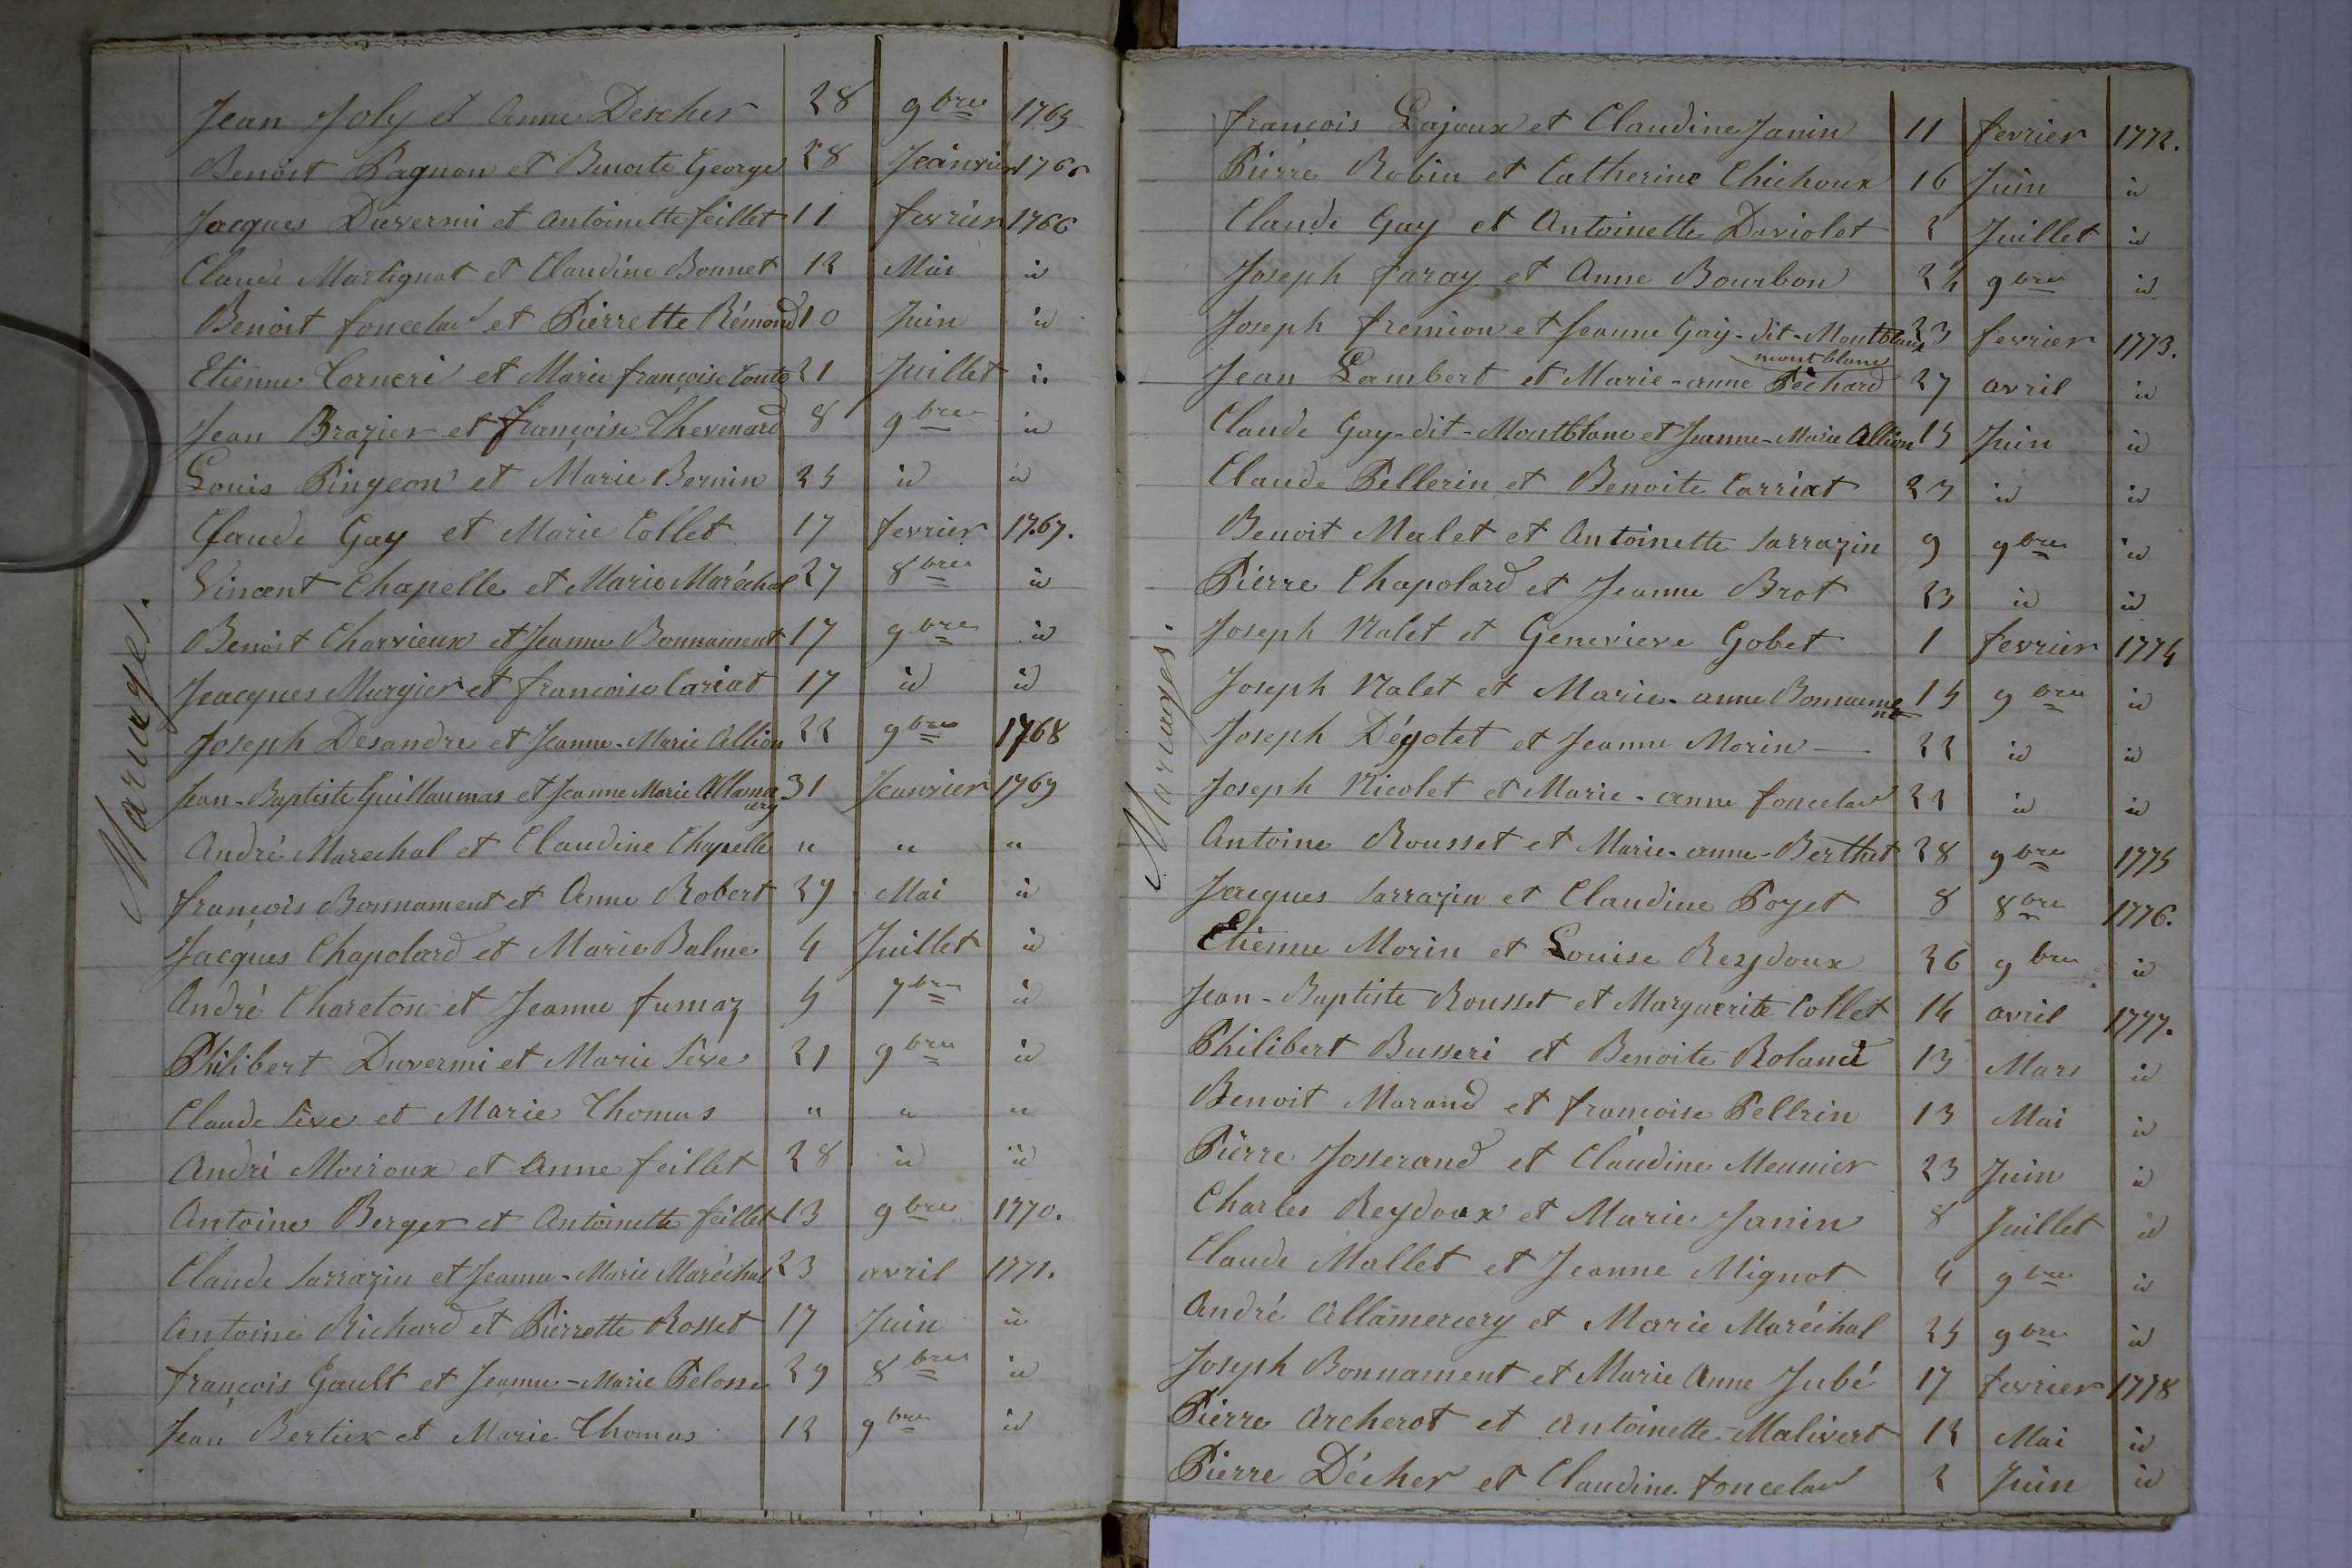 Mariages.
Jean Joly et Anne Descher 28 9bre 1765
Benoit Pagnon et Benoite George 28 Jeanvier 1766
Jacques Duvermi et Antoinette feillet 11 fevrier 1766
Claude Martignat et Claudine Bonnet 12 Mai id
Benoit foucelard et Pierrette Rémond 10 Juin id
Etienne Corneri et Marie françoise Conte 21 Juillet id
Jean Brazier et françoise Thevenard 8 9bre id
Louis Pingeon et Marie Bernin 25 id id
Claude Gay et Marie Collet 17 fevrier 1767.
Vincent Chapelle et Marie Maréchal 27 8bre id
Benoit Charvieux et Jeanne Bonnament 17 9bre id
Jeacques Murgier et francoise Cariat 17 id id
Joseph Desandre et Jeanne-Marie Allion 22 9bre 1768
Jean-Baptiste Guillaumas et Jeanne Marie Allamercery 31 Jeanvier 1769
André Marechal et Claudine Chapelle " " "
françois Bonnament et Anne Robert 29 Mai id
Jacques Chapolard et Marie Balme 4 Juillet id
André Chareton et Jeanne fumaz 5 7bre id
Philibert Duvermi et Marie Sève 21 9bre id
Claude Sève et Marie Thomas " " "
André Moiroux et Anne feillet 28 id id
Antoine Berger et Antoinette feillet 13 9bre 1770.
Claude Sarrazin et Jeanne-Marie Maréchal 23 avril 1771.
Antoine Richard et Pierrette Rosset 17 Juin id
françois Gault et Jeanne-Marie Pelosse 29 8bre id
Jean Bertier et Marie Thomas 12 9bre id
Mariages.
françois Lajoux et Claudine Janin 11 fevrier 1772.
Pierre Robin et Catherine Chichoux 16 Juin id
Claude Gay et Antoinette Daviolet 2 Juillet id
Joseph faray et Anne Bourbon 24 9bre id
Joseph fremion et Jeanne Gay-dit-Montblanc 23 fevrier 1773.
montblanc
Jean Lambert et Marie-anne Péchard 27 avril id
Claude Gay-dit-Montblanc et Jeanne-Marie Allion 15 Juin id
Claude Pellerin et Benoite Carriat 23 id id
Benoit Malet et Antoinette Sarrazin 9 9bre id
Pierre Chapolard et Jeanne Brot 23 id id
Joseph Nalet et Genevieve Gobet 1 fevrier 1774
Joseph Nalet et Marie-anne Bonnament 15 9bre id
Joseph Dégotet et Jeanne Morin — 22 id id
Joseph Nicolet et Marie-anne foucelard 22 id id
Antoine Rousset et Marie-anne-Berthet 28 9bre 1775
Jacques Sarrazin et Claudine Poyet 8 8bre 1776.
Etienne Morin et Louise Reydoux 26 9bre id
Jean-Baptiste Rousset et Marguerite Collet 14 avril 1777.
Philibert Busseri et Benoite Roland 13 Mars id
Benoit Marand et francoise Pellrin 13 Mai id
Pierre Josserand et Claudine Meunier 23 Juin id
Charles Reydoux et Marie Janin 8 Juillet id
Claude Mallet et Jeanne Mignot 4 9bre id
André Allamercery et Marie Maréchal 25 9bre id
Joseph Bonnament et Marie Anne Jubé 17 fevrier 1778
Pierre Archerot et Antoinette-Malivert 12 Mai id
Pierre Décher et Claudine foucelard 2 Juin id